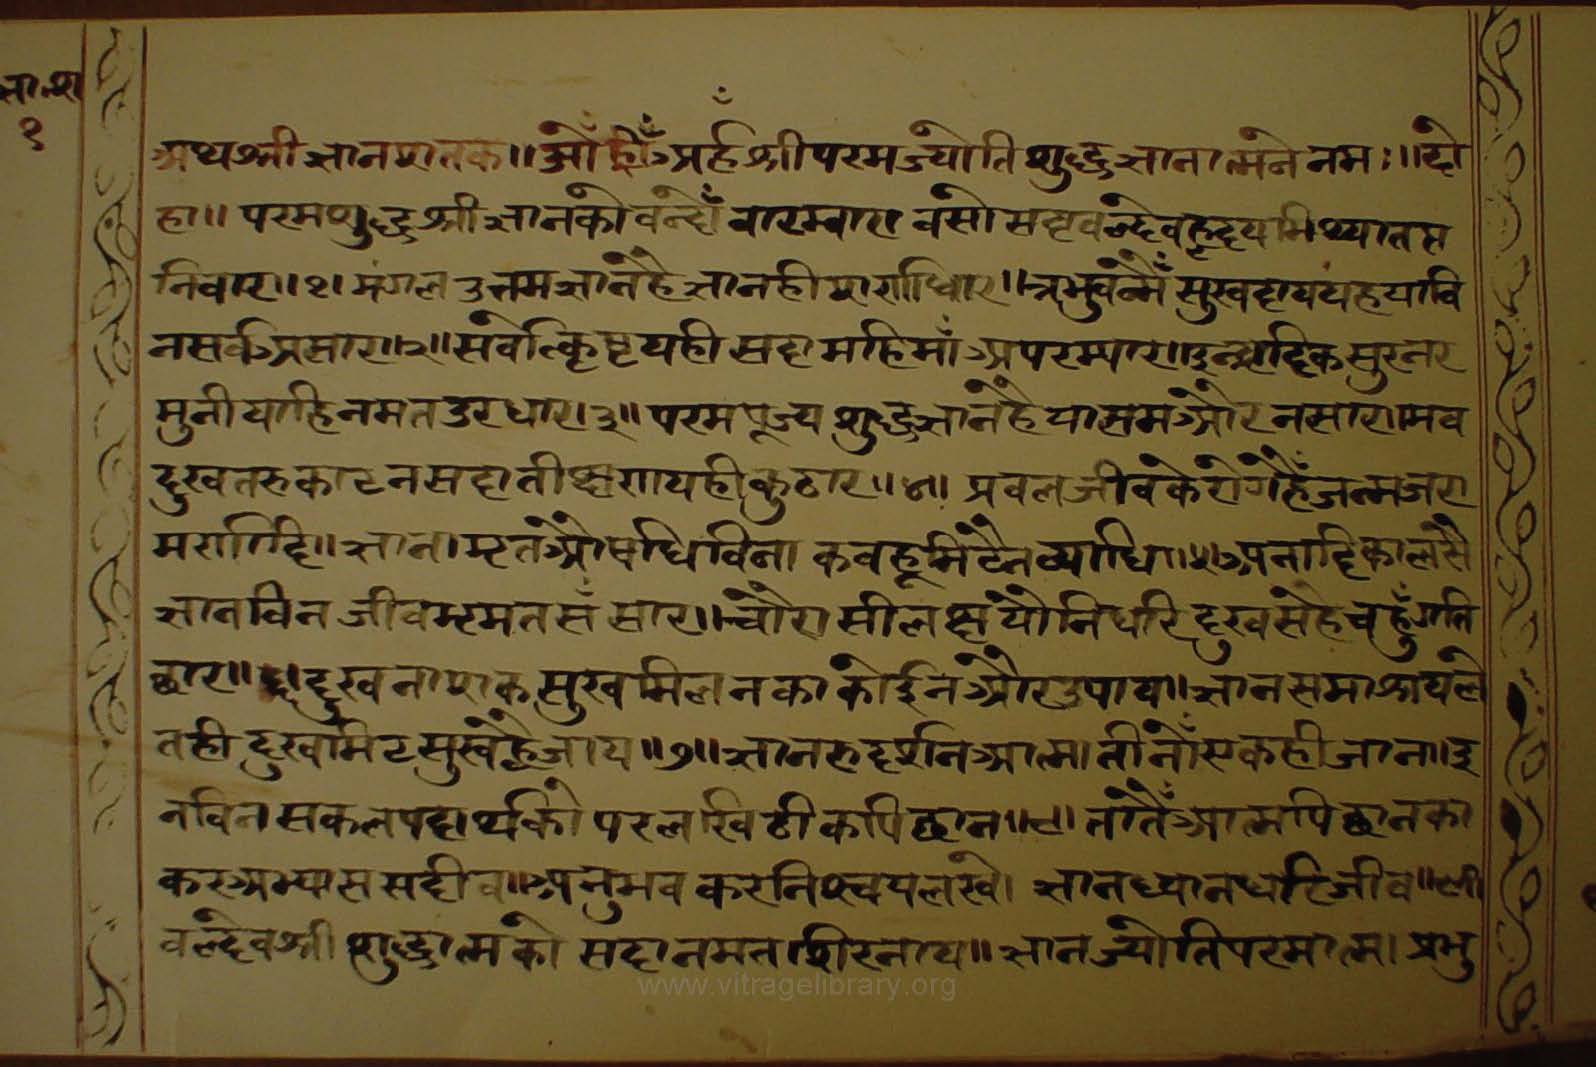 ज्ञा॰श
१
अथ श्री ज्ञान शतक॥ ओं ह्रीं अर्हं श्री परम ज्योति शुद्ध ज्ञानात्मने नमः॥ दो
हा॥ परम शुद्ध श्री ज्ञानको वन्दों वारम्वार। वसो सदृ वल्देव हृदय मिथ्यातम
निवार॥१। मंगल उत्तम ज्ञान है ज्ञान ही शरणाधार॥ त्रभुवन्में सुखदाय यह या वि
न सर्व असार॥२॥ सर्वोत्किृष्ट यही सदा महिमां अपरम्पार॥ इन्द्रादिक सुर नर
मुनी याहि नमत उर धार।३॥ परम पूज्य शुद्ध ज्ञान है या सम और न सार॥ भव
दुख तरु काटन सदा तीक्षण यही कुठार॥४॥ प्रवल जीवके रोग हैं जन्म जरा
मरणादि॥ ज्ञानामृत औषधि विना कवहू मिटै न व्याधि॥५॥ अनादि कालसे
ज्ञान विन जीव भ्रमत संसार॥ चौरासी लक्ष योनि धरि दुख सहे चहुँ गति
छार॥६॥ दुख नाशक सुख मिलनका कोई न और उपाय॥ ज्ञान समाश्रय ले
त ही दुख मिट सुख है जाय॥७॥ ज्ञान रु दर्शन आत्मा तीनों एक ही जान॥ इ
न विन सकल पदार्थको पर लखि ठीक पिछान॥८॥ तातैं आत्म पिछानका
कर अभ्यास सदीव॥ अनुभव कर निश्चय लखे। ज्ञान ध्यान धरि जीव॥९॥
वल्देव श्री शुद्धात्मको सदा नमत शिर नाय॥ ज्ञान ज्योति परमात्मा प्रभु
www.vitragelibrary.org